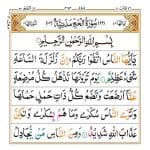 سُوْرَةُ الْحَجِّ مَدَنِيَّةٌ
بِسْمِ اللّٰهِ الرَّحْمٰنِ الرَّحِيْمِ
يٰٓاَيُّهَا النَّاسُ اتَّقُوْا رَبَّكُمْ ۚ اِنَّ زَلْزَلَةَ السَّاعَةِ
شَيْءٌ عَظِيْمٌ يَوْمَ تَرَوْنَهَا تَذْهَلُ كُلُّ مُرْضِعَةٍ
عَمَّآ اَرْضَعَتْ وَتَضَعُ كُلُّ ذَاتِ حَمْلٍ حَمْلَهَا
وَتَرَى النَّاسَ سُكٰرٰى وَمَا هُمْ بِسُكٰرٰى وَلٰكِنَّ
عَذَابَ اللّٰهِ شَدِيْدٌ وَمِنَ النَّاسِ مَنْ